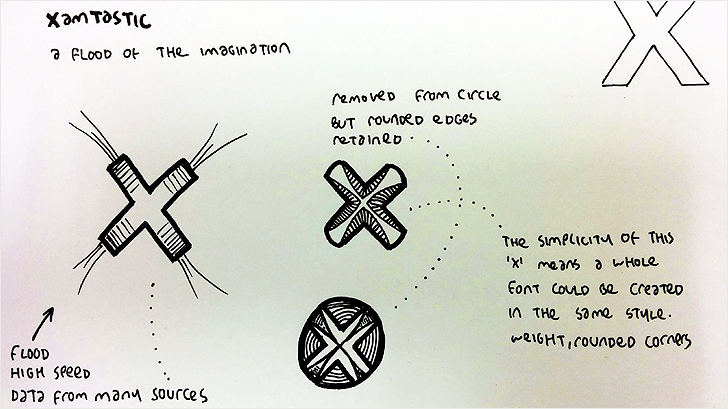 xamtastic
a flood of the imagination
removed from circle
but rounded edges
retained.
X
The simplicity of this
'x' means a whole
font could be created
in the same style.
weight, rounded corners
flood
high speed
data from many sources